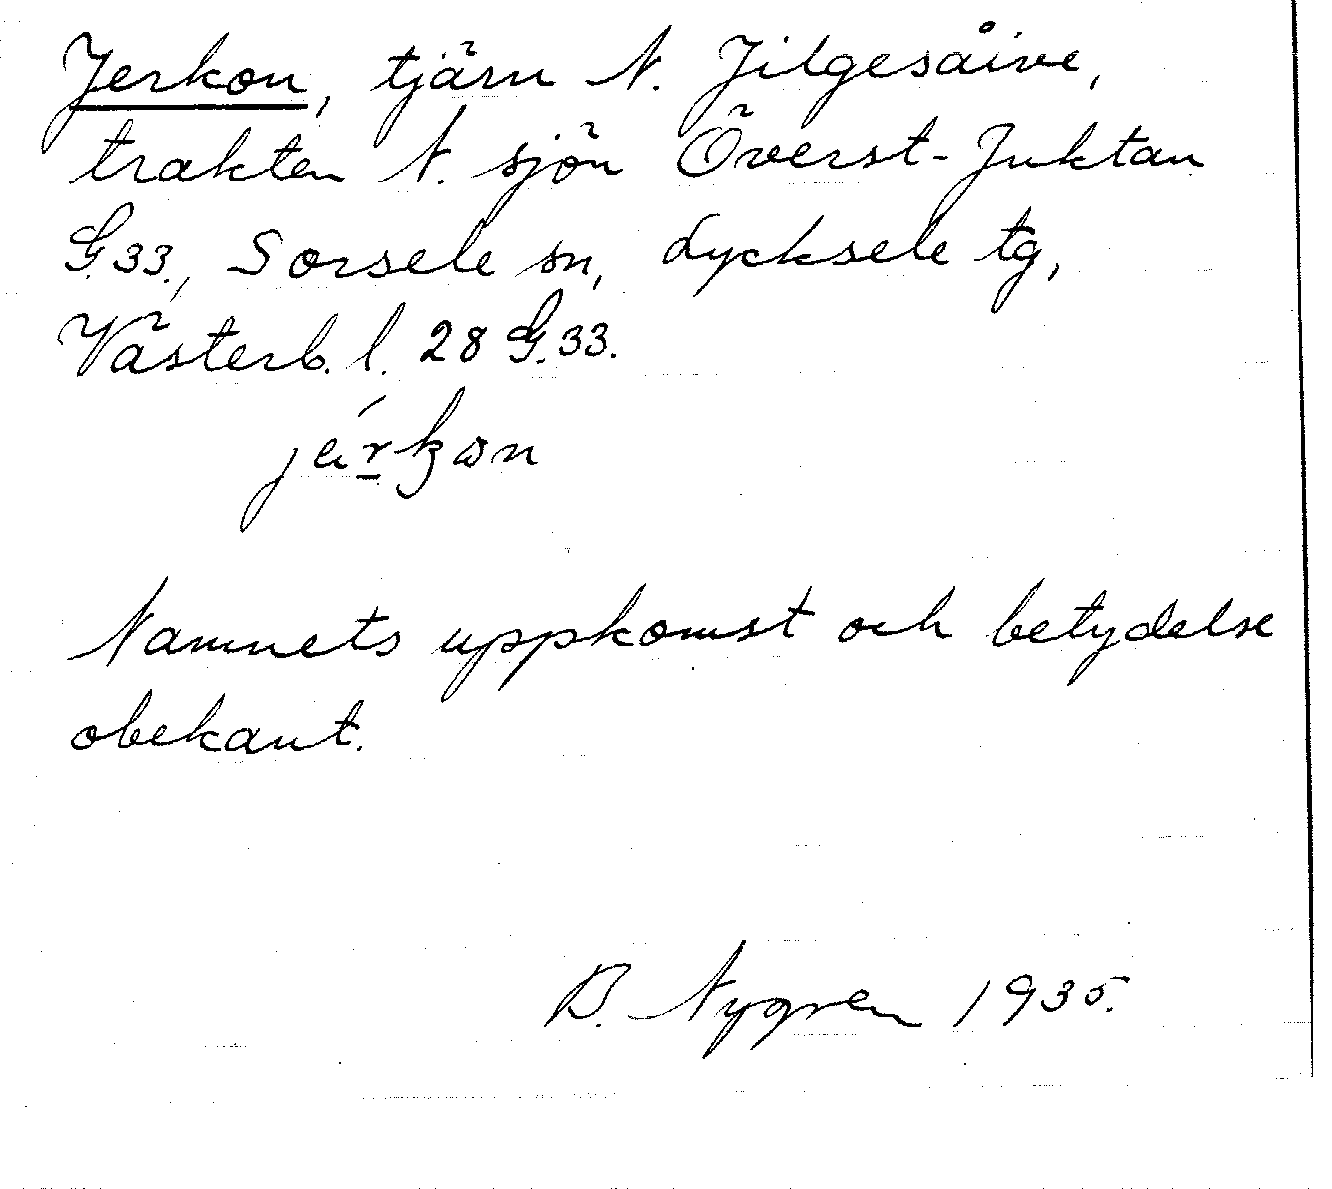 Jerkon, tjärn N. Jilgesåive,
trakten N. sjön Överst-Juktan
G.33., Sorsele sn, Lycksele tg,
Västerb. l. 28 G.33.
Namnets uppkomst och betydelse
obekant.
B. Nygren 1935.